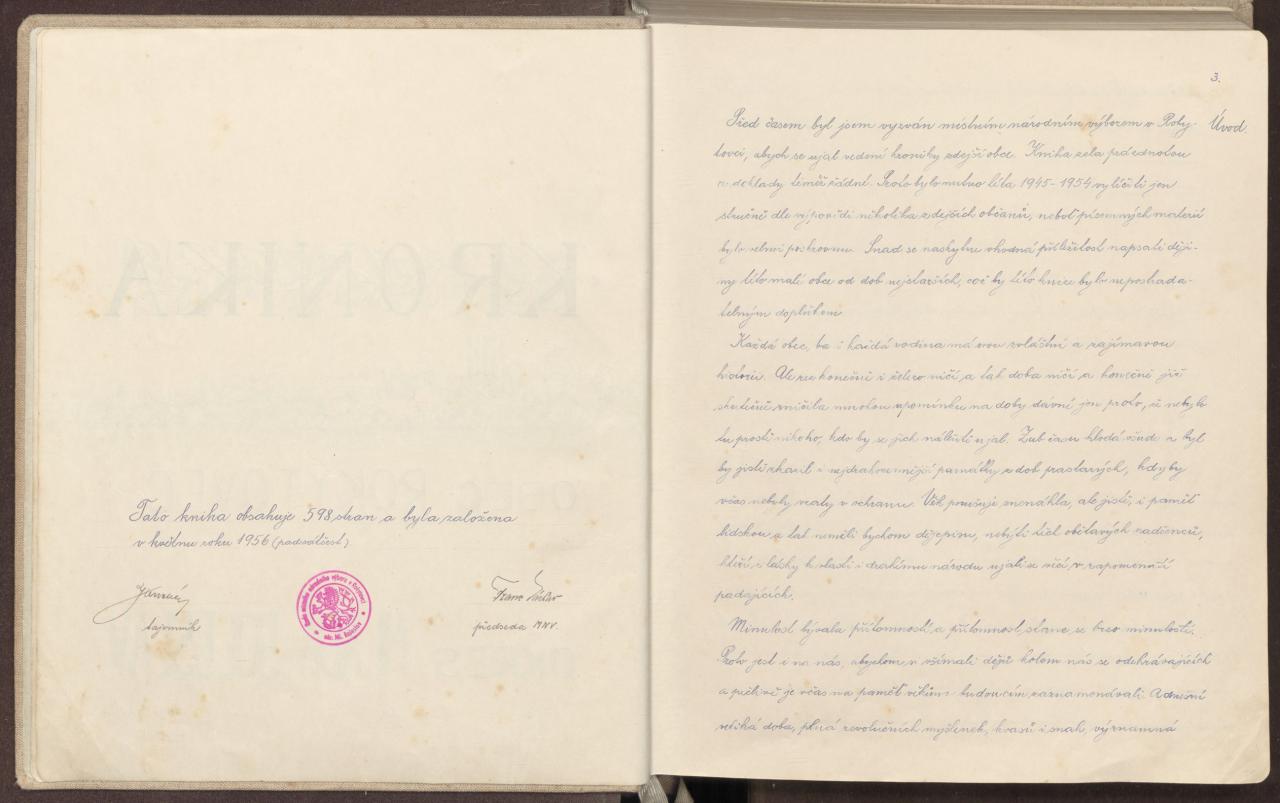 Tato kniha obsahuje 598 stran a byla založena
v květnu roku 1956 (padesátšest)
tajemník
předseda MNV.
3.
Úvod.
Před časem byl jsem vyzván místním národním výborem v Roky-
tovci, abych se ujal vedení kroniky zdejší obce. Kniha zela prázdnotou
a doklady téměř žádné. Proto bylo nutno léta 1945-1954 vylíčiti jen
stručně dle výpovědi několika zdejších občanů, neboť písemných materií
bylo velmi poskrovnu. Snad se naskytne vhodná příležitost napsati ději-
ny této malé obce od dob nejstarších, což by této knize bylo nepostrada-
telným doplňkem
Každá obec, ba i každá rodina má svou zvláštní a zajímavou
historii. Ale rez konečně i železo ničí a tak doba ničí a konečně již
skutečně zničila mnohou upomínku na doby dávné jen proto, že nebylo
tu prostě nikoho, kdo by se jich náležitě ujal. Zub času hlodá všude a byl
by jistě zhasil i nejdrahocennější památky z dob prastarých, kdyby
včas nebyly vzaty v ochranu. Věk porušuje znenáhla, ale jistě, i paměť
lidskou a tak neměli bychom dějepisu, nebýti těch obětavých nadšenců,
kteří z lásky k vlasti i drahému národu ujali se věcí v zapomenutí
padajících.
Minulost bývala přítomností a přítomnost stane se brzo minulostí.
Proto jest i na nás, abychom si všímali dějů kolem nás se odehrávajících
a pečlivě je včas na paměť věkům budoucím zaznamenávali. A dnešní
veliká doba, plná revolučních myšlenek, kvasů i snah, významná